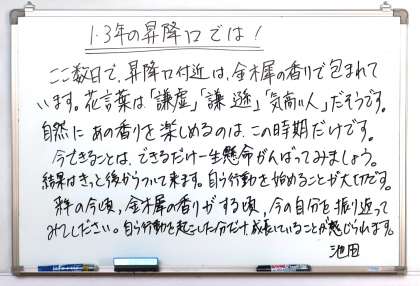 1・3年の昇降口では！
ここ数日で、昇降口付近は、金木犀の香りで包まれて
います。花言葉は「謙虚」「謙遜」「気高い人」だそうです。
自然にあの香りを楽しめるのは、この時期だけです。
今できることは、できるだけ一生懸命がんばってみましょう。
結果はきっと後からついて来ます。自ら行動を始めることが大切です。
来年の今頃、金木犀の香りがする頃、今の自分を振り返って
みてください。自ら行動を起こした分だけ成長していることが感じられます。
池田